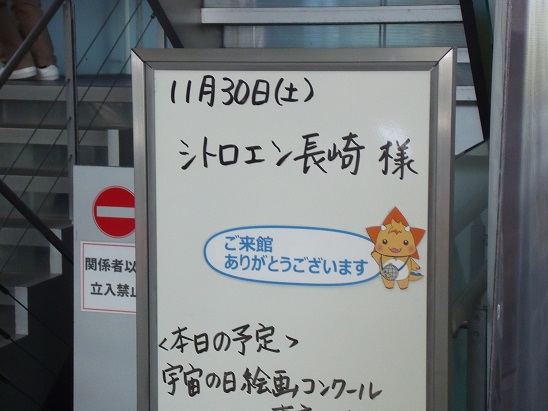 11月30日(土)
シトロエン長崎 様
ご来館
ありがとうございます
関係者以
立入禁止
<本日の予定>
宇宙の日絵画コンクール